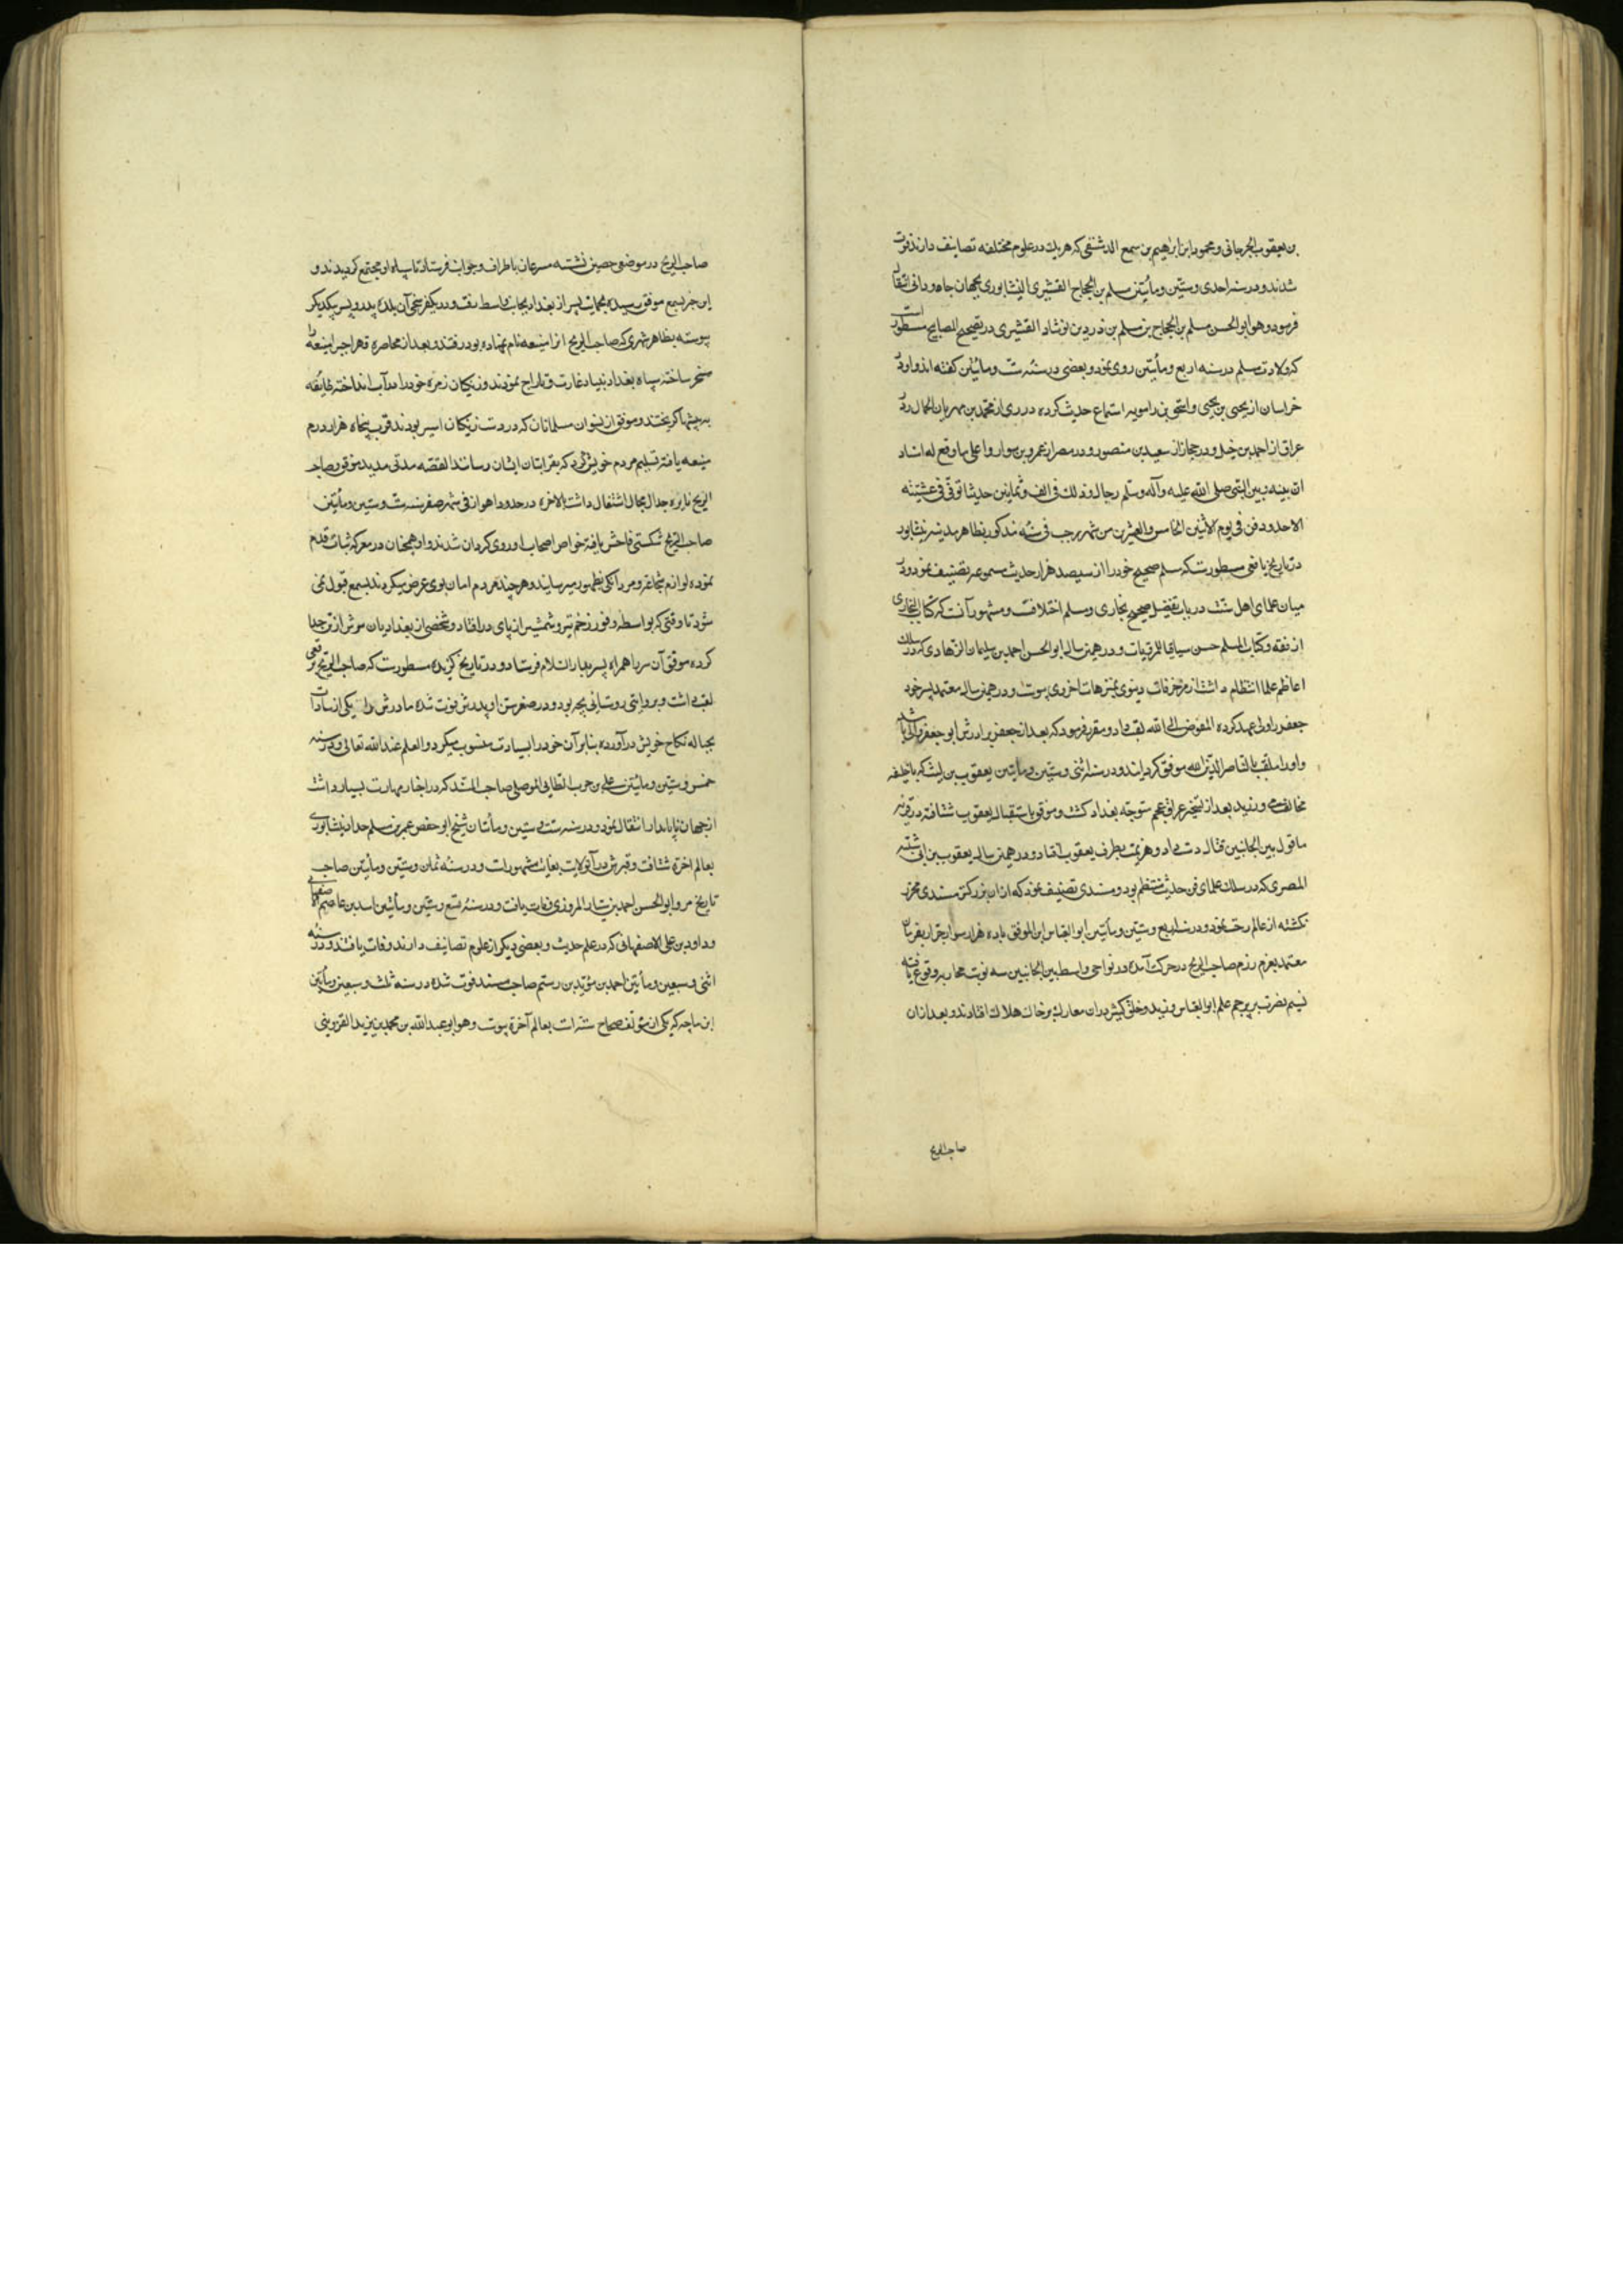 بن یعقوب الجرجانی و محمود ابن ابراهیم بن سمیع الدمشقی که هر یک در علوم مختلفه تصانیف دارند فوت
شدند و در سنه احدی و ستین و مأتین مسلم بن الحجاج القشیری النیشابوری بجهان جاودانی انتقال
فرمود و هو ابو الحسن مسلم بن الحجاج بن مسلم بن القشیری در تصحیح المصابیح مسطور است
که ولادت مسلم در سنه اربع و مأتین روی نمود و بعضی در سنه ست و مأتین گفته اند و او در
خراسان از یحیی بن یحیی و اسحق بن راهویه استماع حدیث کرده در ری از محمد بن مهران الجمال و در
عراق از احمد بن حنبل و در حجاز از سعید بن منصور و در مصر از عمرو بن سواد و اعلی ما وقع له اسناد
ان بینه و بین النبی صلی الله علیه وآله وسلم رجال و ذلک فی الف و ثمانین حدیثا توفی فی عشیته
الاحد و دفن فی یوم الاثنین الخامس والعشرین من شهر رجب فی سنه مذکور بظاهر مدینه نیشابور
در تاریخ یافعی مسطورست که مسلم صحیح خود را از سیصد هزار حدیث مسموعه تصنیف نمود و در
میان علمای اهل سنت در باب تفضیل صحیح بخاری و مسلم اختلافست و مشهور آنست که کتاب البخاری
از فقه و کتاب المسلم حسن سیاقا للمرویات و در همین سال ابو الحسن احمد بن سلیمان الزهادی که در سلک
اعاظم علما انتظام داشت از مزخرفات دنیوی بمتنزهات اخروی پیوست و در همین سال معتمد پسر خود
جعفر را ولی عهد کرده المفوض الی الله لقب داد و مقرر فرمود که بعد از جعفر برادرش ابو جعفر والی باشد
و او را ملقب بالناصر لدین الله موفق گردانید و در سنه اثنی و ستین و مأتین یعقوب بن لیث که با خلیفه
مخالفت می ورزید بعد از تسخیر عراق عجم متوجه بغداد گشت و موفق باستقبال یعقوب شتافته در قریه
ماقول بین الجانبین قتال دست داد و هزیمت بطرف یعقوب افتاد و در همین سال یعقوب بن ابی شیبه
المصری که در سلک علمای فن حدیث منتظم بود و مسندی تصنیف نمود که ازان بزرگتر مسندی محرر
نگشته از عالم رحلت نمود و در سنه اربع و ستین و مأتین ابو العباس ابن الموفق با ده هزار سوار جرار بفرمان
معتمد بعزم رزم صاحب الزنج در حرکت آمده در نواحی واسط بین الجانبین سه نوبت محاربه وقوع یافته
نسیم نصرت بر پرچم علم ابو العباس وزید و خلق کثیر دران معارک بر خاک هلاک افتادند و بعد ازان
صاحب الزنج
صاحب الزنج در موضعی حصین نشسته مسرعان باطراف و جوانب فرستاد تا سپاه او مجتمع گردیدند و
این خبر بسمع موفق رسیده بحمایت پسر از بغداد بجانب واسط رفت و در یکفرسخی آن بلده پدر و پسر بیکدیگر
پیوسته بظاهر شهری که صاحب الزنج انرا منیعه نام نهاده بود رفتند و بعد از محاصره قهرا جبرا منیعه را
مسخر ساخته سپاه بغداد بنیاد غارت و تاراج نمودند و زنگیان زمره خود را در آب انداخته طایفه
به بیشها گریختند و موفق از نسوان مسلمانان که در دست زنگیان اسیر بودند قرب پنجاه هزار در
منیعه یافته تسلیم مردم خویش کرد که بقرابتان ایشان رسانند القصه مدتی مدید موفق و صاحب
الزنج نایره جدال مجال اشتعال داشت بالاخره در حدود اهواز فی شهر صفر سنه ست و ستین و مأتین
صاحب الزنج شکستی فاحش یافته خواص اصحاب او روی گردان شدند و او همچنان در معرکه ثبات قدم
نموده لوازم شجاعت و مردانگی بظهور میرسانید و هر چند مردم امان بوی عرض میکردند بسمع قبول نمی
شنود تا وقتی که بواسطه وفور زخم تیر و شمشیر از پای در افتاد و شخصی از بغدادیان سرش از تن جدا
کرده موفق آن سر را همراه پسر بدار السلام فرستاد و در تاریخ گزیده مسطورست که صاحب الزنج برقعی
لقب داشت و بروایتی روستائی بچه بود و در صغر سن او پدرش فوت شده مادرش را یکی از سادات
بحباله نکاح خویش در آورده بنابر آن خود را بسیادت منسوب میکرد و العلم عند الله تعالی و در سنه
خمس و ستین و مأتین علی بن حرب الطائی الموصلی صاحب المسند که در اخبار مهارت بسیار داشت
از جهان ناپایدار انتقال نمود و در سنه ست و ستین و مأتان شیخ ابو حفص عمر بن مسلم حداد نیشابوری
بعالم اخرة شتافت و قبرش در آن ولایت بغایت مشهور است و در سنه ثمان و ستین و مأتین صاحب
تاریخ مرو ابو الحسن احمد بن سیار المروزی وفات یافت و در سنه تسع و ستین و مأتین اسد بن عاصم اصفهانی
و داود بن علی الاصفهانی که در علم حدیث و بعضی دیگر از علوم تصانیف دارند وفات یافتند و در سنه
اثنی و سبعین و مأتین احمد بن مؤید بن رستم صاحب مسند فوت شده در سنه ثلث و سبعین و مأتین
ابن ماجه که یکی از مؤلف صحاح سته است بعالم آخرة پیوست و هو ابو عبد الله بن محمد بن یزید القزوینی